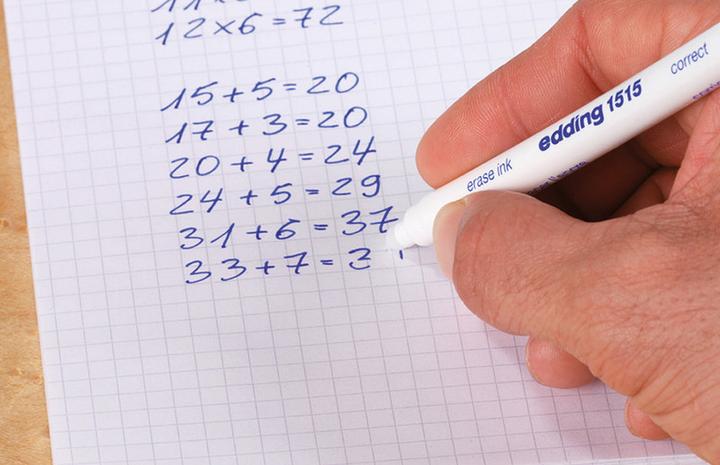 12×6=72
15+5=20
17+3=20
20+4=24
24+5=29
31+6=37
33+7=3
edding 1515
correct
erase ink